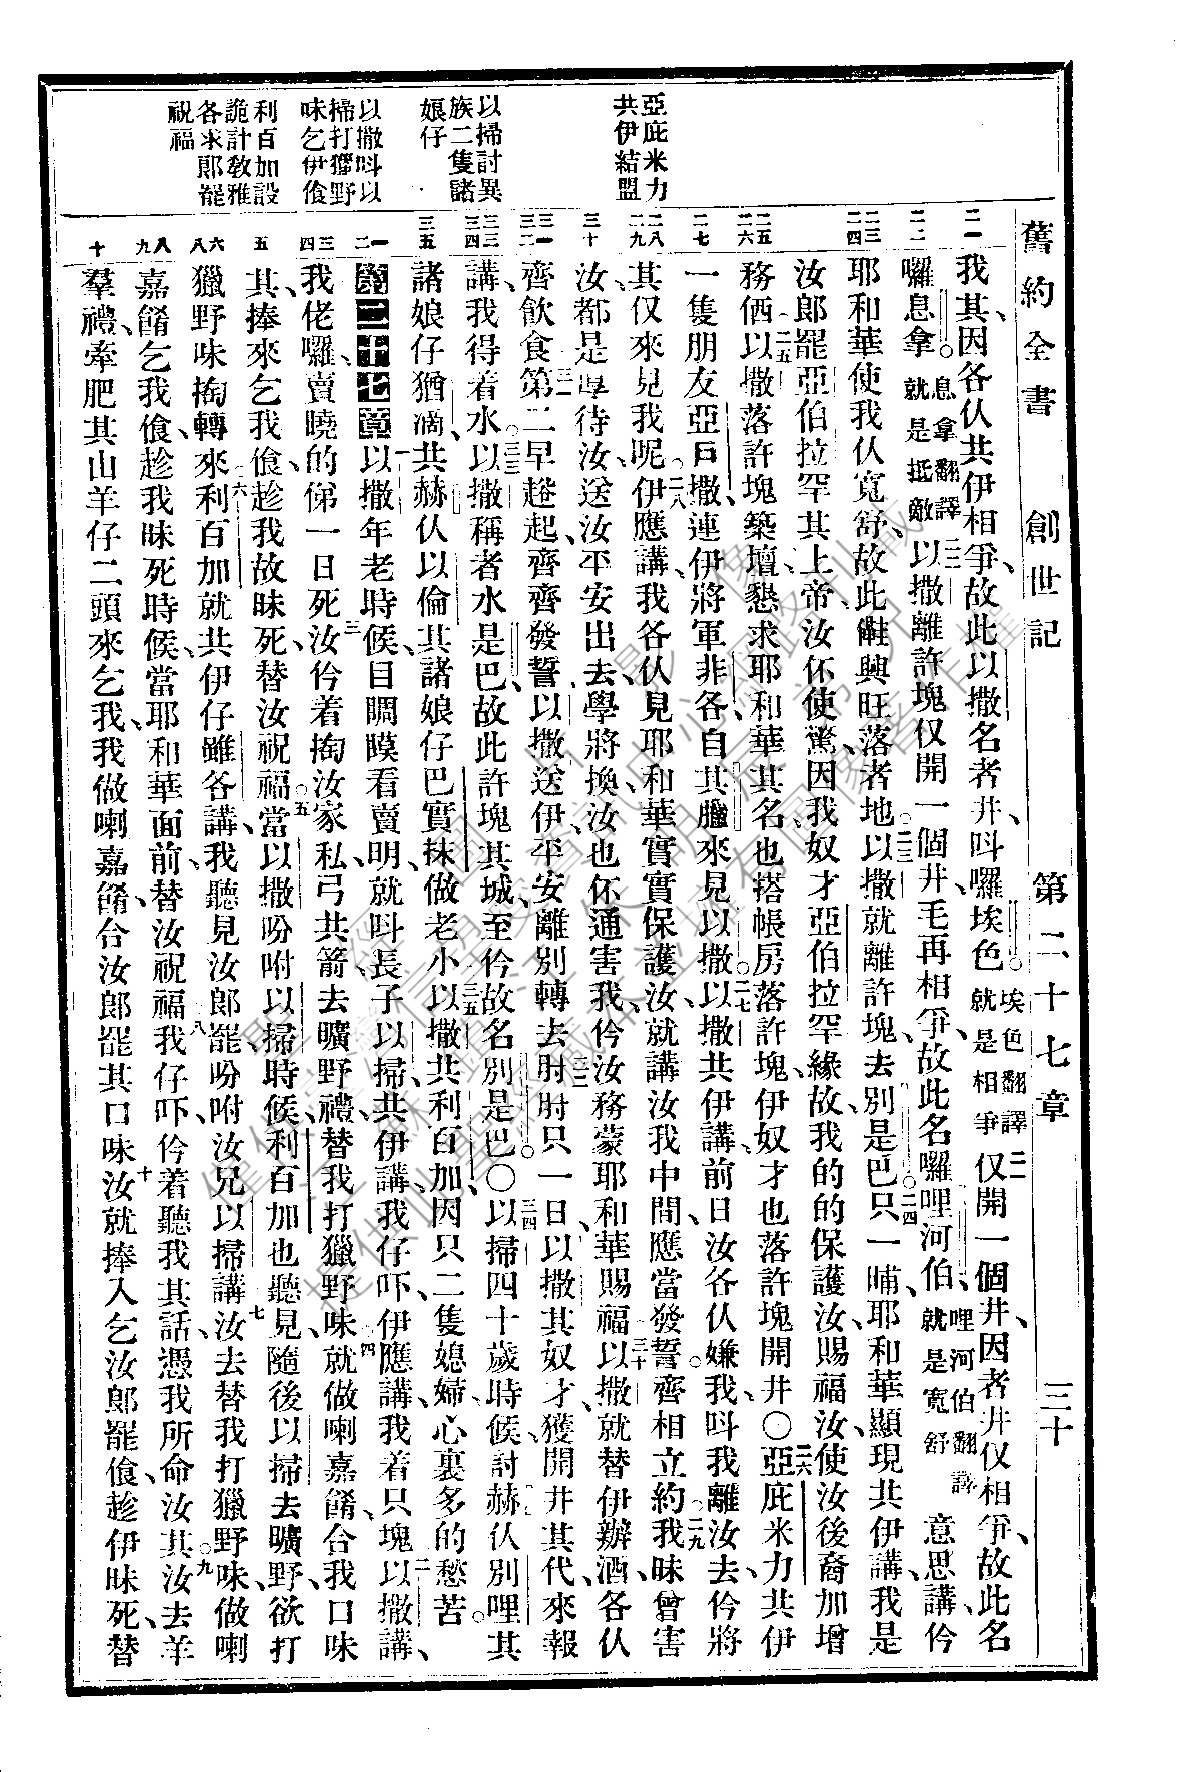 舊約全書　創世記　第二十七章　三十
亞庇米力
共伊結盟
以掃討異
族二隻諸
娘仔
以撒呌以
掃打獵野
味乞伊飧
利百加設
詭計教雅
各求郎罷
祝福
二一
二二
二三
二四
二五
二六
二七
二八
二九
三十
三一
三二
三三
三四
三五
一
二
三
四
五
六
八
八
九
十
我其、因各仈共伊相爭、故此以撒名者井呌囉埃色。埃色翻譯就是相爭 二一仅開一個井、因者井仅相爭、故此名
囉息拿。息拿翻譯就是抵敵 二二以撒離許塊仅開一個井、毛再相爭、故此名囉哩河伯、哩河伯翻譯就是寬舒 意思講、仱
耶和華使我仈寬舒、故此𣍐興旺落者地。二三以撒就離許塊、去別是巴。二四只一晡、耶和華顯現共伊講、我是
汝郎罷亞伯拉罕其上帝、汝伓使驚、因我奴才亞伯拉罕緣故、我的的保護汝、賜福汝、使汝後裔加增
務伵。二五以撒落許塊築壇、懇求耶和華其名、也搭帳房落許塊、伊奴才也落許塊開井〇二六亞庇米力共伊
一隻朋友亞戶撒、連伊將軍非各、自其臘來見以撒。二七以撒共伊講、前日汝各仈嫌我、呌我離汝去、仱將
其仅來見我呢。二八伊應講、我各仈見耶和華實實保護汝、就講汝我中間應當發誓、齊相立約。二九我昧曾害
汝、都是厚待汝、送汝平安出去、學將換汝也伓通害我、仱汝務蒙耶和華賜福。三十以撒就替伊辦酒、各仈
齊飲食。三一第二早趤起、齊齊發誓、以撒送伊平安離別轉去。三二肘肘只一日、以撒其奴才、獲開井其代、來報
講、我得着水。三三以撒稱者水是巴、故此許塊其城、至仱故名別是巴〇三四以掃四十歲時候、討赫仈別哩其
諸娘仔猶滴、共赫仈以倫其諸娘仔巴實抹做老小。三五以撒共利百加、因只二隻媳婦、心裏多的愁苦。
第二十七章 一以撒年老時候、目睭瞙看賣明、就呌長子以掃、共伊講、我仔吓、伊應講、我着只塊。二以撒講、
我佬囉、賣曉的俤一日死。三汝仱着掏汝家私弓共箭、去曠野禮、替我打獵野味。四就做喇嘉餚合我口味
其、捧來乞我飧、趁我故昧死、替汝祝福。五當以撒吩咐以掃時候、利百加也聽見、隨後以掃去曠野、欲打
獵野味掏轉來。六利百加就共伊仔雖各講、我聽見汝郎罷吩咐汝兄以掃講、七汝去替我打獵野味、做喇
嘉餚乞我飧、趁我昧死時候、當耶和華面前替汝祝福。八我仔吓、仱着聽我其話、憑我所命汝其。九汝去羊
羣禮、牽肥其山羊仔二頭來乞我、我做喇嘉餚、合汝郎罷其口味。十汝就捧入乞汝郎罷飧、趁伊昧死、替